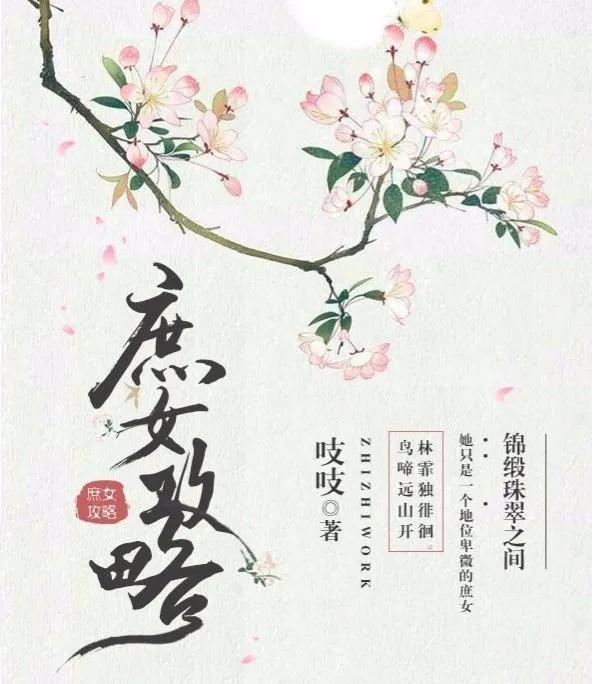 庶女攻略
庶女
攻略
吱吱◎著
ZHIZHIWORK
林霏独徘徊。
鸟啼远山开
锦缎珠翠之间
她只是一个地位卑微的庶女